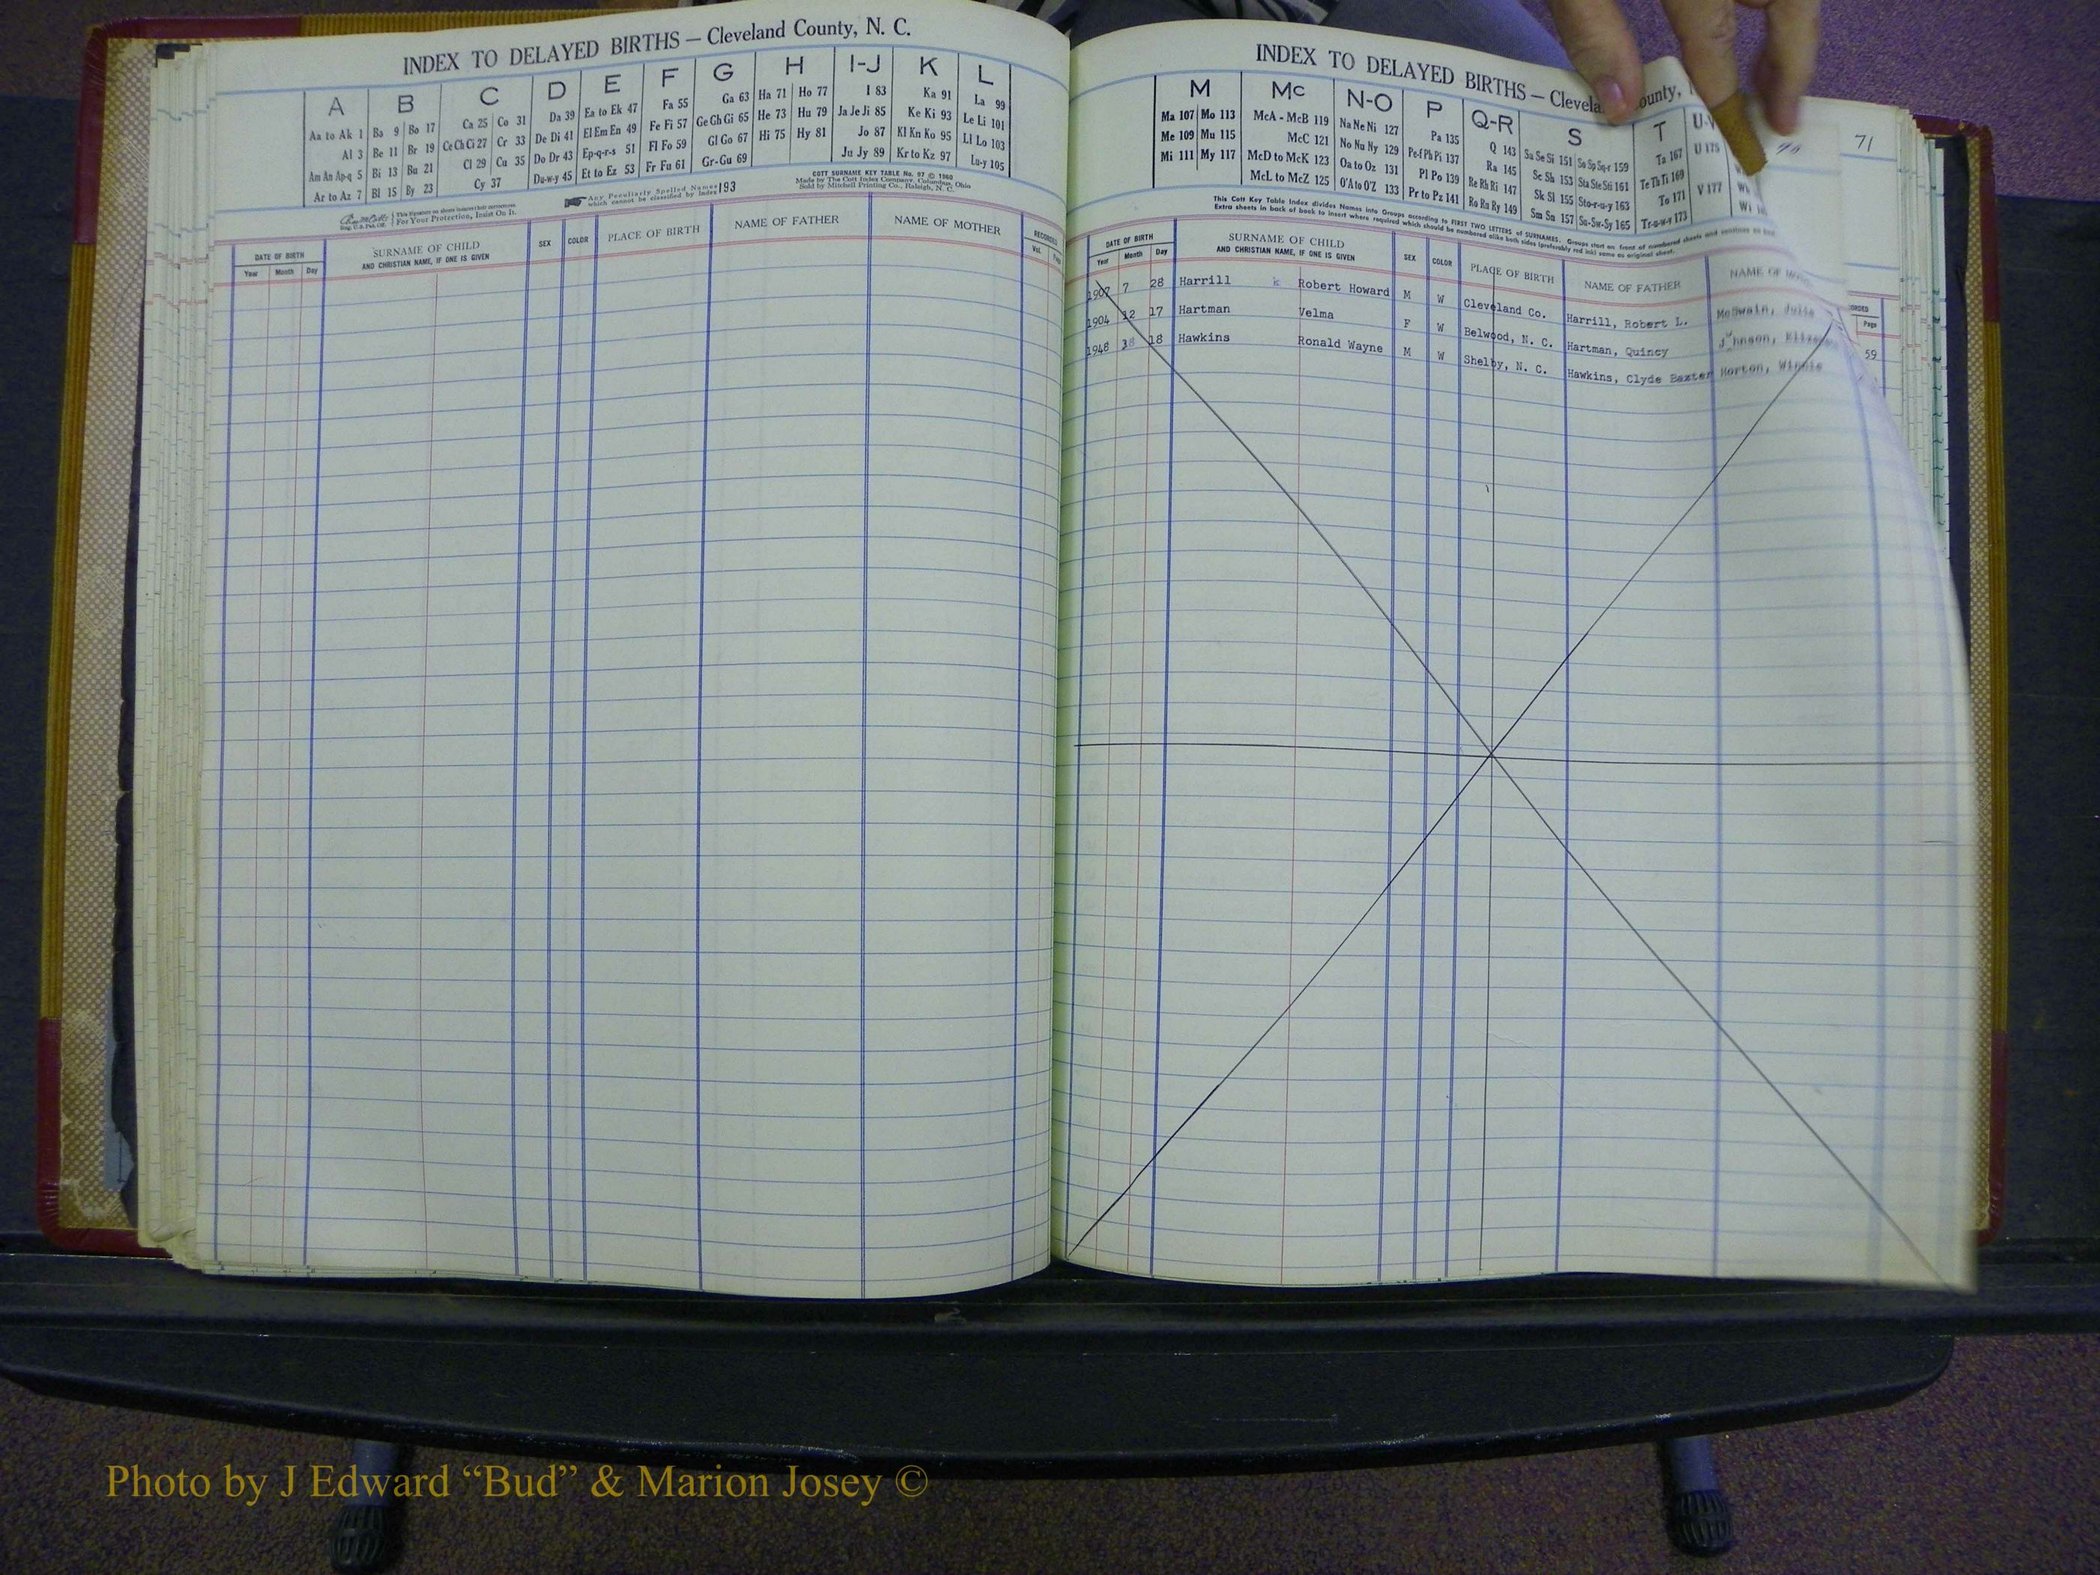 INDEX TO DELAYED BIRTHS — Cleveland County, N. C.
A B C D E F G H I-J K L
Aa to Ak 1 Ba 9 Bo 17 Ca 25 Co 31 Da 39 Ea to Ek 47 Fa 55 Ga 63 Ha 71 Ho 77 I 83 Ka 91 La 99
Al 3 Be 11 Br 19 Ce Ch Ci 27 Cr 33 De Di 41 El Em En 49 Fe Fi 57 Ge Gh Gi 65 He 73 Hu 79 Ja Je Ji 85 Ke Ki 93 Le Li 101
Am An Ap-q 5 Bi 13 Bu 21 Cl 29 Cu 35 Do Dr 43 Ep-q-r-s 51 Fl Fo 59 Gl Go 67 Hi 75 Hy 81 Jo 87 Kl Kn Ko 95 Ll Lo 103
Ar to Az 7 Bl 15 By 23 Cy 37 Du-w-y 45 Et to Ez 53 Fr Fu 61 Gr-Gu 69 Ju Jy 89 Kr to Kz 97 Lu-y 105
For Your Protection, Insist On It.
Any Peculiarly Spelled Names which cannot be classified by Index 193
COTT SURNAME KEY TABLE No. 97 © 1960
Made by The Cott Index Company, Columbus, Ohio
Sold by Mitchell Printing Co., Raleigh, N. C.
DATE OF BIRTH SURNAME OF CHILD SEX COLOR PLACE OF BIRTH NAME OF FATHER NAME OF MOTHER RECORDED
Year Month Day AND CHRISTIAN NAME, IF ONE IS GIVEN Vol. Page
INDEX TO DELAYED BIRTHS — Cleveland County,
M Mc N-O P Q-R S T U-V
Ma 107 Mo 113 McA - McB 119 Na Ne Ni 127 Pa 135 Q 143 Sa Se Si 151 So Sp Sq-r 159 Ta 167 U 175
Me 109 Mu 115 McC 121 No Nu Ny 129 Pe-f Ph Pi 137 Ra 145 Sc Sh 153 Sta Ste Sti 161 Te Th Ti 169
Mi 111 My 117 McD to McK 123 Oa to Oz 131 Pl Po 139 Re Rh Ri 147 Sk Sl 155 Sto-r-u-y 163 To 171 V 177
McL to McZ 125 O'A to O'Z 133 Pr to Pz 141 Ro Ru Ry 149 Sm Sn 157 Su-Sw-Sy 165 Tr-u-w-y 173
71
This Cott Key Table Index divides Names into Groups according to FIRST TWO LETTERS of SURNAMES. Groups start on front of numbered sheets and continue on
Extra sheets in back of book to insert where required which should be numbered alike both sides (preferably red ink) same as original sheet.
DATE OF BIRTH SURNAME OF CHILD SEX COLOR PLACE OF BIRTH NAME OF FATHER NAME OF
Year Month Day AND CHRISTIAN NAME, IF ONE IS GIVEN Page
1907 7 28 Harrill Robert Howard M W Cleveland Co. Harrill, Robert L. McSwain, Julia
1904 12 17 Hartman Velma F W Belwood, N. C. Hartman, Quincy Johnson, 59
1948 18 Hawkins Ronald Wayne M W Shelby, N. C. Hawkins, Clyde Baxter Morton, Winnie
Photo by J Edward “Bud” & Marion Josey ©